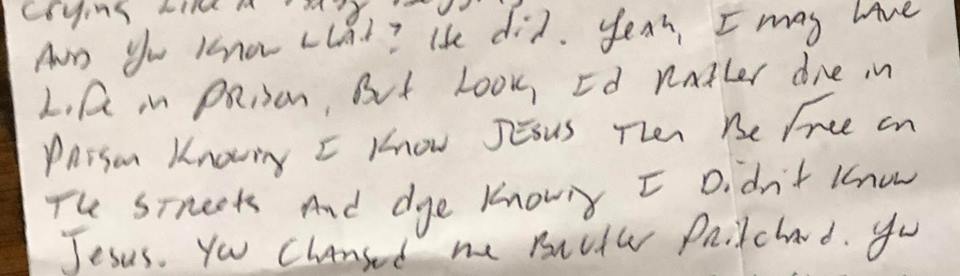 crying like a
And you know what? He did. Yeah, I may have
Life in prison, But Look, I'd Rather die in
Prison Knowing I Know JESUS Then Be Free on
The STreets And dye Knowing I Didn't Know
Jesus. You Changed me Brother Pritchard. You